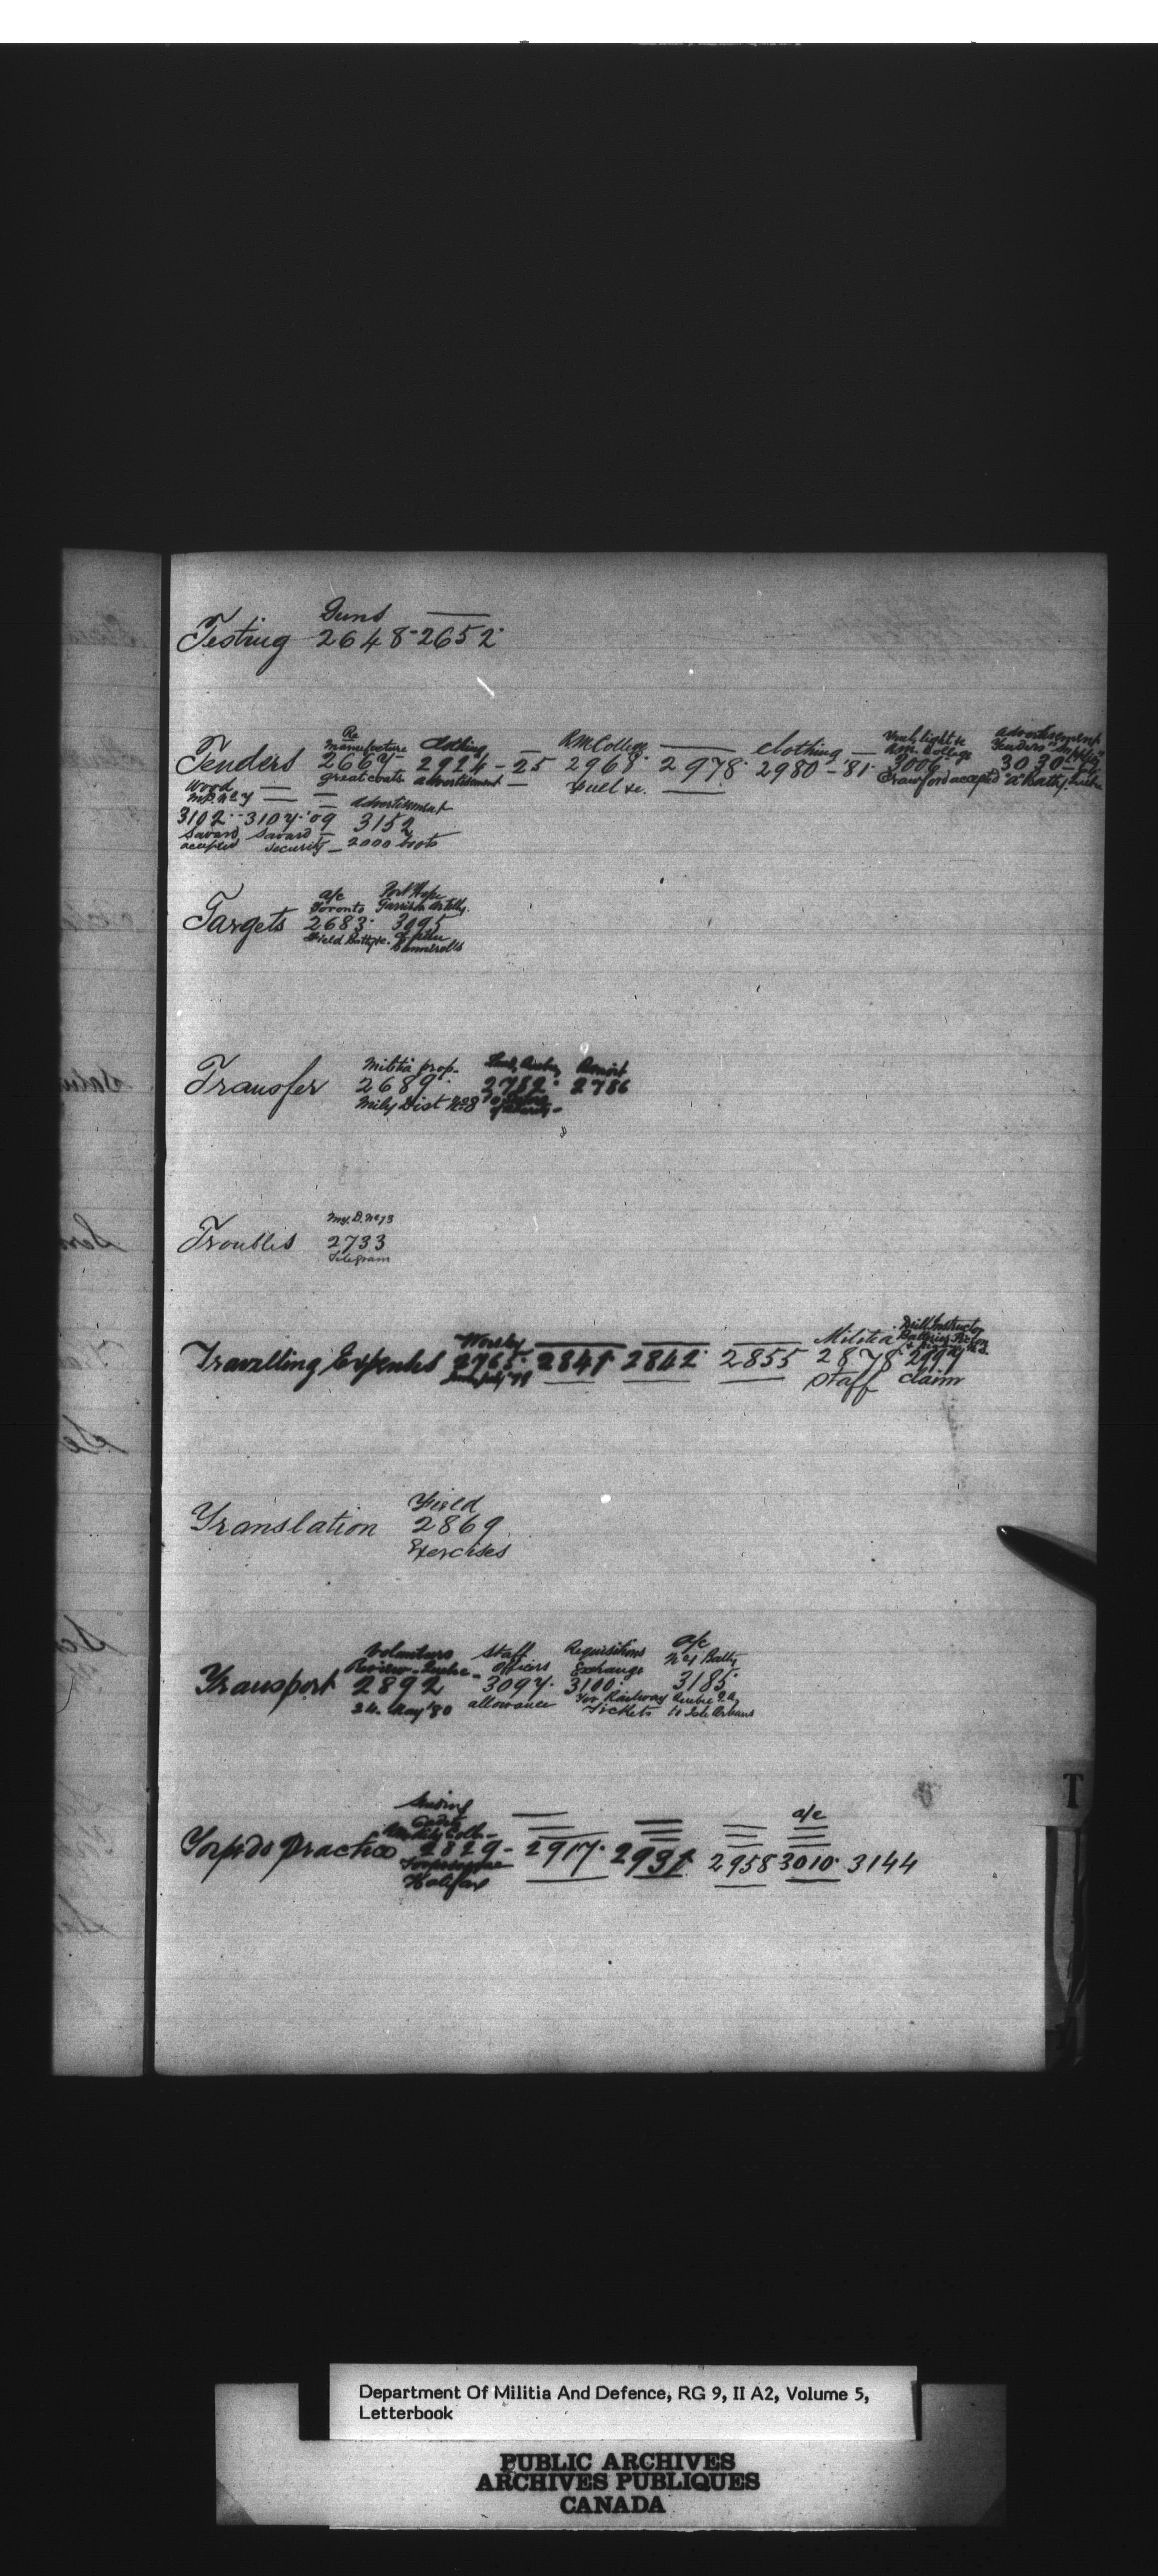 Guns
Testing 2648 - 2652
Re
Manufacture Clothing R M College clothing Fuel, light &c Advertisement
R.M. College Tenders Supply
Tenders 2667 - 2924 - 25 2968 2978 2980 - '81 3006 3030
great coats advertisement Fuel &c. Crawford accepted "A" Batty. Quebec
Wood
Advertisement
3102 - 3107 - 09 3152
Savard Savard
accepted security - 2000 boots
a/c Port Hope
Toronto Garrison Artilly.
Targets 2683 3095
Field Batty &c.
Militia prop.
Transfer 2689 2782 2786
Mily Dist No 8
Troubles 2733
Telegram
Drill Instructor
Worsley Militia Batteries
Travelling Expenses 2765 2841 2842 2855 2878 2997
June, July '79 Staff claim
Field
Translation 2869
Exercises
a/c
Volunteers Staff Requisitions No 1 Batty
Review - Quebec - Officers Exchange
Transport 2892 3097 3100 3185
24. May '80 allowance for Railway Quebec G.A.
Tickets to Isle Orleans
Sending
Cadets a/c
Torpedo Practice 2829 - 2917 2931 2958 3010 3144
Halifax
T
Department Of Militia And Defence, RG 9, II A2, Volume 5,
Letterbook
PUBLIC ARCHIVES
ARCHIVES PUBLIQUES
CANADA